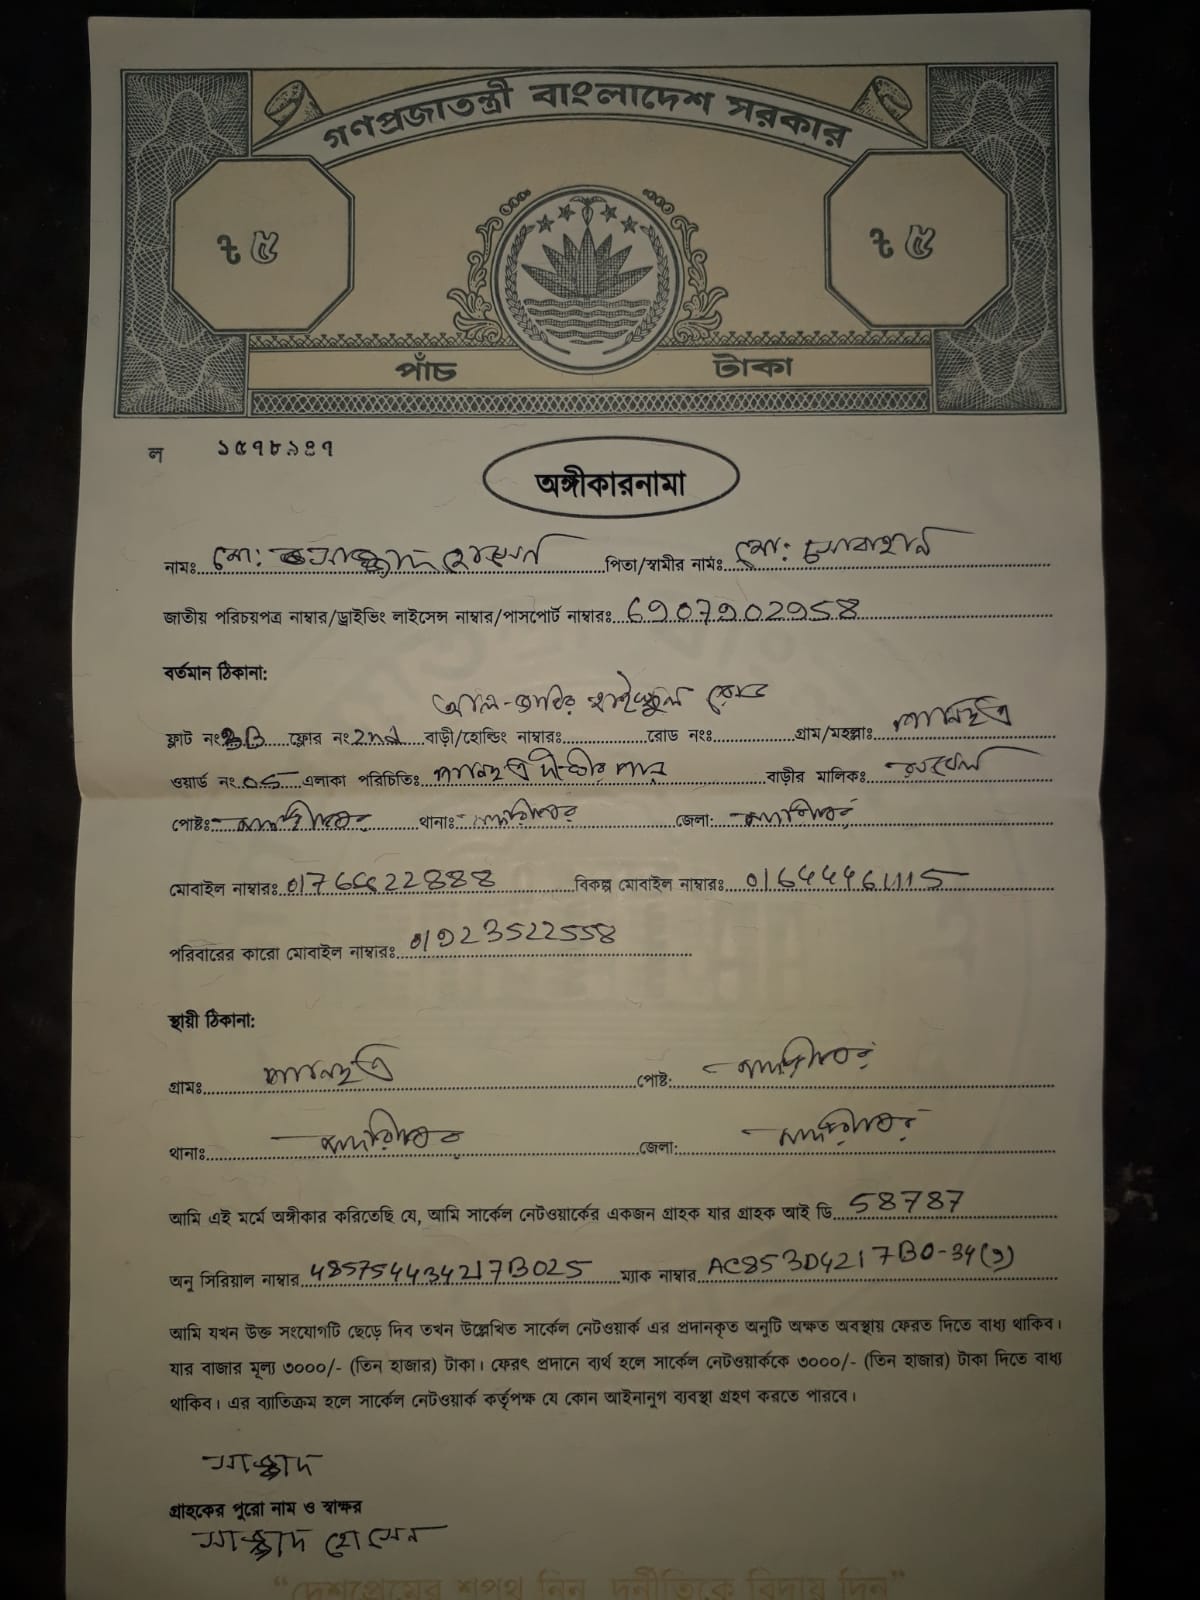 গণপ্রজাতন্ত্রী বাংলাদেশ সরকার
৳ ৫ ৳ ৫
পাঁচ টাকা
ল ১৫৭৮৯৪৭
অঙ্গীকারনামা
নামঃ মো: সাজ্জাদ হোসেন পিতা/স্বামীর নামঃ মো: সোবাহান
জাতীয় পরিচয়পত্র নাম্বার/ড্রাইভিং লাইসেন্স নাম্বার/পাসপোর্ট নাম্বারঃ 6907902958
বর্তমান ঠিকানা:
আল-জাবির হাইস্কুল রোড
ফ্লাট নং 3B ফ্লোর নং 2nd বাড়ী/হোল্ডিং নাম্বারঃ রোড নংঃ গ্রাম/মহল্লাঃ পানিছত্র
ওয়ার্ড নং 05 এলাকা পরিচিতিঃ পানিছত্র দীঘীর পার বাড়ীর মালিকঃ
পোষ্টঃ মাদারীপুর থানাঃ মাদারীপুর জেলা: মাদারীপুর
মোবাইল নাম্বারঃ বিকল্প মোবাইল নাম্বারঃ 01644461115
পরিবারের কারো মোবাইল নাম্বারঃ 01923522558
স্থায়ী ঠিকানা:
গ্রামঃ পানিছত্র পোষ্ট: মাদারীপুর
থানাঃ মাদারীপুর জেলা: মাদারীপুর
আমি এই মর্মে অঙ্গীকার করিতেছি যে, আমি সার্কেল নেটওয়ার্কের একজন গ্রাহক যার গ্রাহক আই ডি 58787
অনু সিরিয়াল নাম্বার 485754434217B025 ম্যাক নাম্বার AC853D4217B0-34(9)
আমি যখন উক্ত সংযোগটি ছেড়ে দিব তখন উল্লেখিত সার্কেল নেটওয়ার্ক এর প্রদানকৃত অনুটি অক্ষত অবস্থায় ফেরত দিতে বাধ্য থাকিব।
যার বাজার মূল্য ৩০০০/- (তিন হাজার) টাকা। ফেরৎ প্রদানে ব্যর্থ হলে সার্কেল নেটওয়ার্ককে ৩০০০/- (তিন হাজার) টাকা দিতে বাধ্য
থাকিব। এর ব্যাতিক্রম হলে সার্কেল নেটওয়ার্ক কর্তৃপক্ষ যে কোন আইনানুগ ব্যবস্থা গ্রহণ করতে পারবে।
সাজ্জাদ
গ্রাহকের পুরো নাম ও স্বাক্ষর
সাজ্জাদ হোসেন
“দেশপ্রেমের শপথ নিন, দুর্নীতিকে বিদায় দিন”